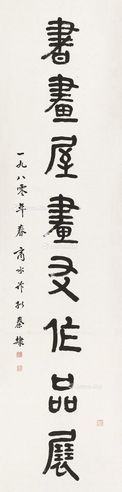 書畫屋畫友作品展
一九八零年春商承祚秦隸